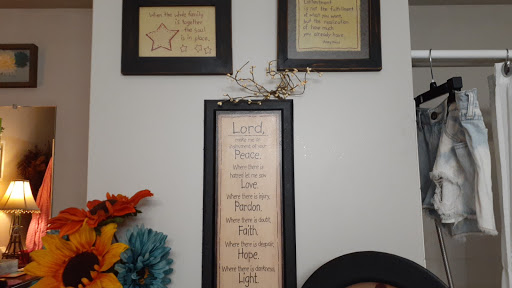 When the whole family
is together
the soul
is in place.
Contentment
is not the fulfillment
of what you want,
but the realization
of how much
you already have.
Lord,
make me an
instrument of your
Peace.
Where there is
hatred let me sow
Love.
Where there is injury,
Pardon.
Where there is doubt,
Faith.
Where there is despair,
Hope.
Where there is darkness,
Light.